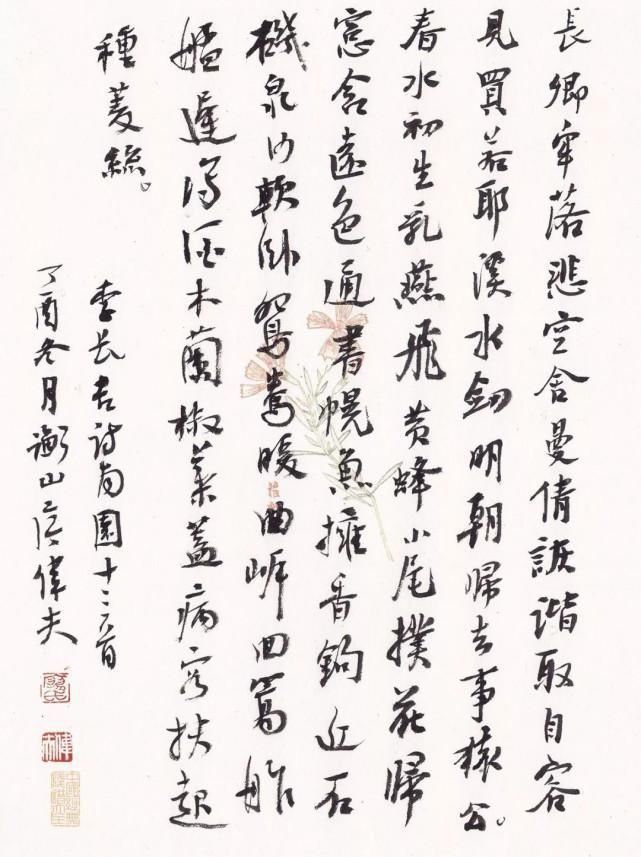 長卿牢落悲空舍曼倩詼諧取自容
見買若耶溪水劒明朝歸去事猿公。
春水初生乳燕飛黃蜂小尾撲花歸
窓含遠色通書幌魚擁香鈎近石
磯泉沙軟卧鴛鴦暖曲岸回篙舴
艋遲瀉酒木蘭椒葉蓋病容扶起
種菱絲。
李長吉詩南園十首
丁酉冬月衡山偉夫